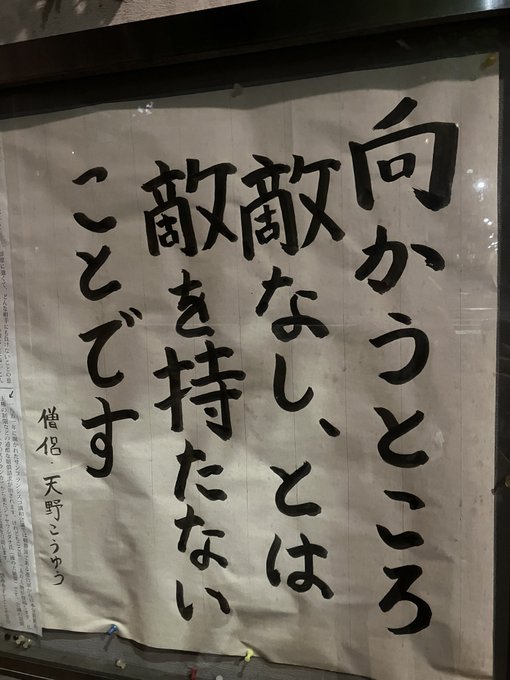 向かうところ
敵なし、とは
敵を持たない
ことです
僧侶・天野こうゆう